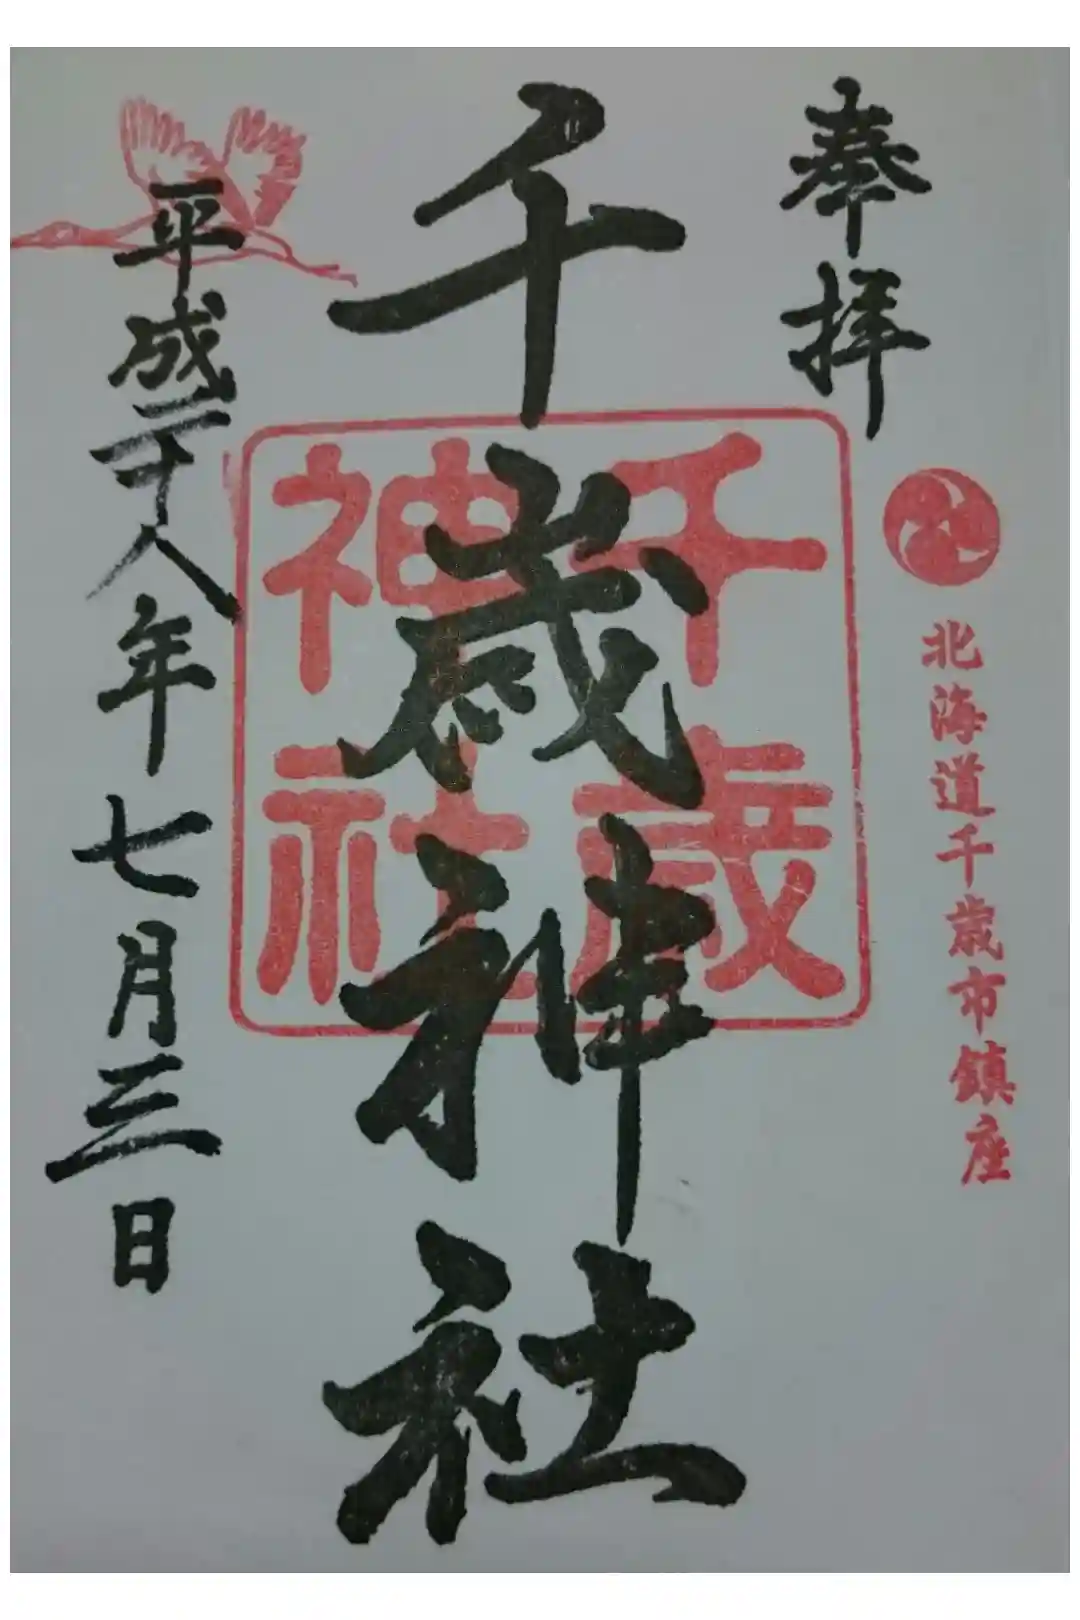 奉拝
北海道千歳市鎮座
千歳神社
千歳神社
平成二十八年七月三日